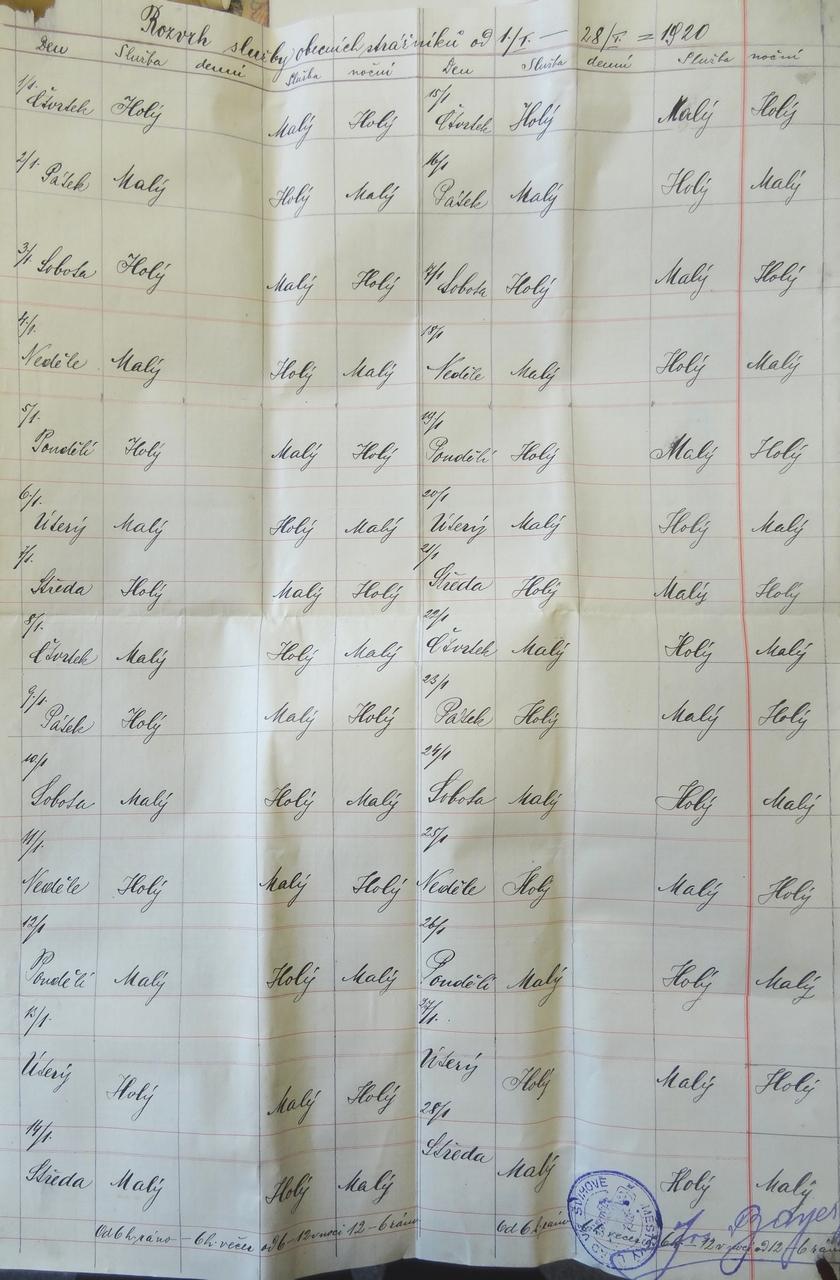 Rozvrh služby obecních strážníků od 1/I. — 28/I. = 1920
Den Služba denní Služba noční Den Služba denní Služba noční
1/1. Čtvrtek Holý Malý Holý 15/1 Čtvrtek Holý Malý Holý
2/1. Pátek Malý Holý Malý 16/1 Pátek Malý Holý Malý
3/1. Sobota Holý Malý Holý 17/1 Sobota Holý Malý Holý
4/1. Neděle Malý Holý Malý 18/1 Neděle Malý Holý Malý
5/1. Pondělí Holý Malý Holý 19/1 Pondělí Holý Malý Holý
6/1. Úterý Malý Holý Malý 20/1 Úterý Malý Holý Malý
7/1. Středa Holý Malý Holý 21/1 Středa Holý Malý Holý
8/1. Čtvrtek Malý Holý Malý 22/1 Čtvrtek Malý Holý Malý
9/1. Pátek Holý Malý Holý 23/1 Pátek Holý Malý Holý
10/1 Sobota Malý Holý Malý 24/1 Sobota Malý Holý Malý
11/1. Neděle Holý Malý Holý 25/1 Neděle Holý Malý Holý
12/1 Pondělí Malý Holý Malý 26/1 Pondělí Malý Holý Malý
13/1. Úterý Holý Malý Holý 27/1. Úterý Holý Malý Holý
14/1. Středa Malý Holý Malý 28/1 Středa Malý Holý Malý
Od 6 h. ráno — 6 h. večer od 6 – 12 v noci 12 – 6 ráno Od 6 h. ráno 6 h. večer 12 v noci od 12 – 6 ráno
MĚSTSKÝ
Bayer